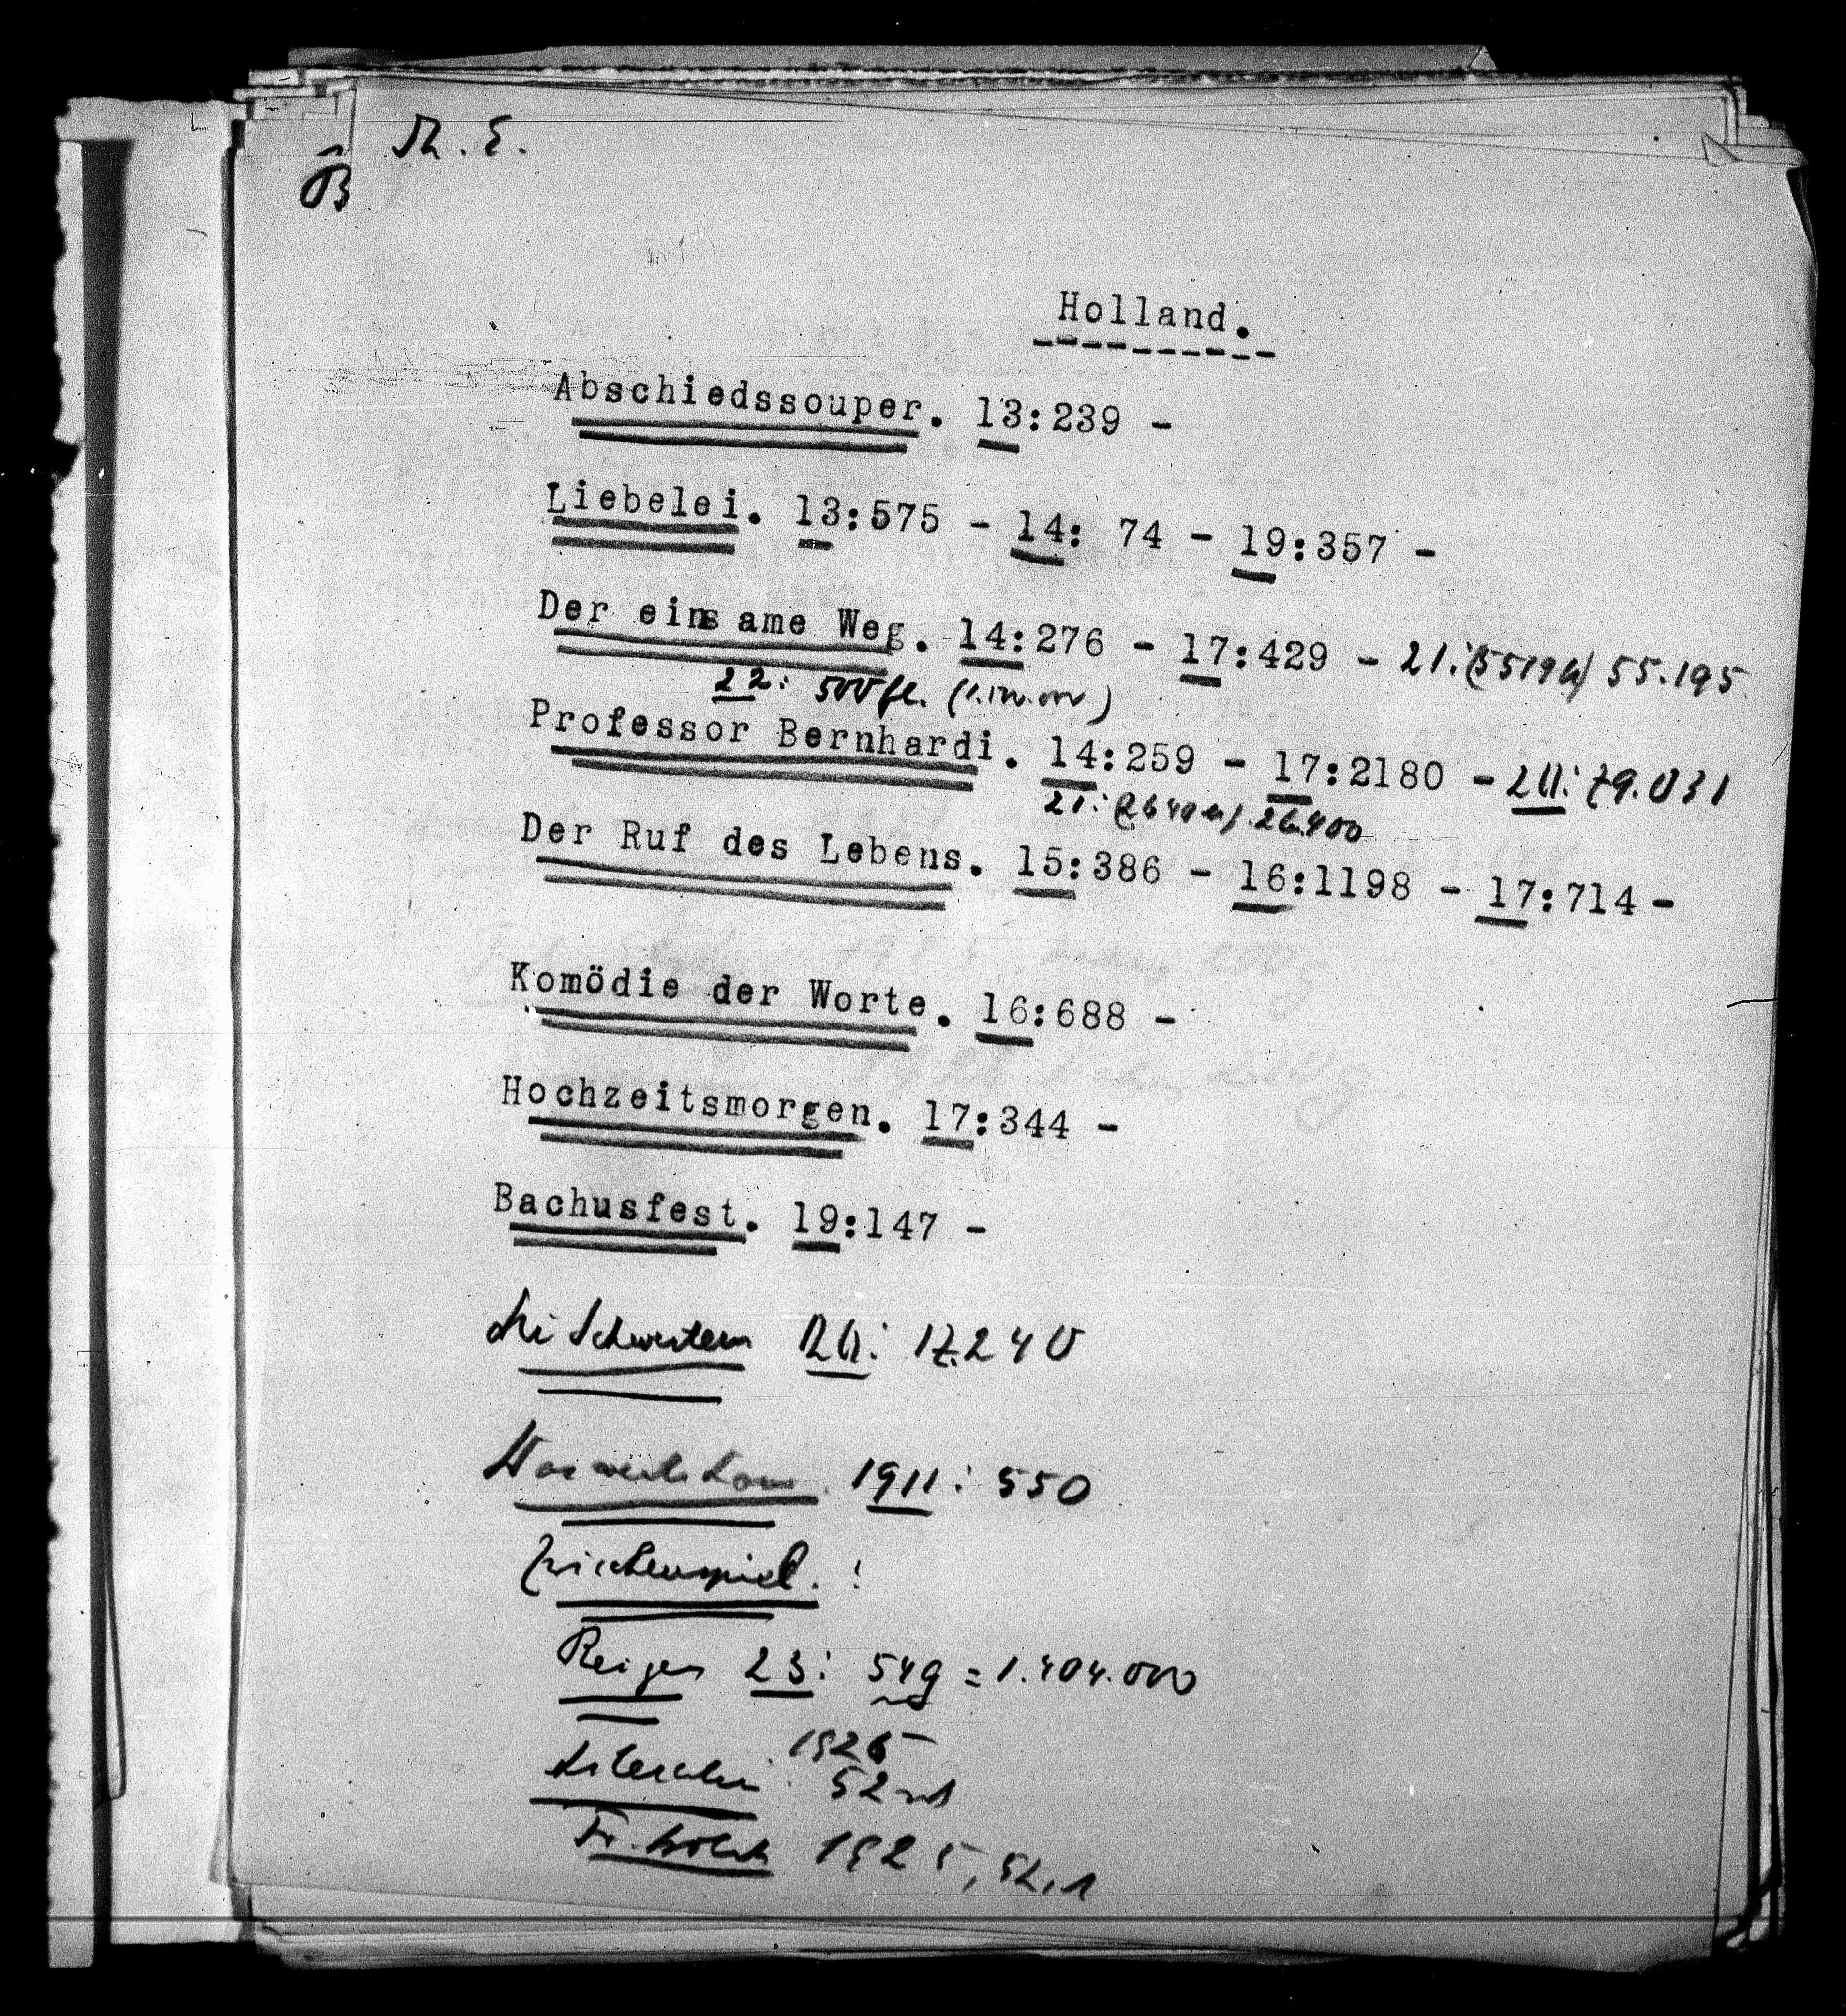 Th. E.
B
Holland.
Abschiedssouper. 13:239 -
Liebelei. 13:575 - 14: 74 - 19:357 -
Der einsame Weg. 14:276 - 17:429 - 21: (5519 h) 55.195
22: 500 fl. (1.100.000)
Professor Bernhardi. 14:259 - 17:2180 - 20: 79.031
21: (2640 h) 26.400
Der Ruf des Lebens. 15:386 - 16:1198 - 17:714 -
Komödie der Worte. 16:688 -
Hochzeitsmorgen. 17:344 -
Bachusfest. 19:147 -
Die Schwestern 20: 17.240
Das weite Land. 1911: 550
Zwischenspiel. :
Reigen 23: 54 g = 1.404.000
1925
52
1925, 52